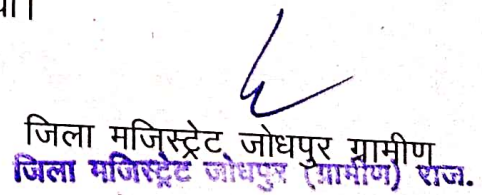 जिला मजिस्ट्रेट जोधपुर ग्रामीण
जिला मजिस्ट्रेट जोधपुर (ग्रामीण) राज.